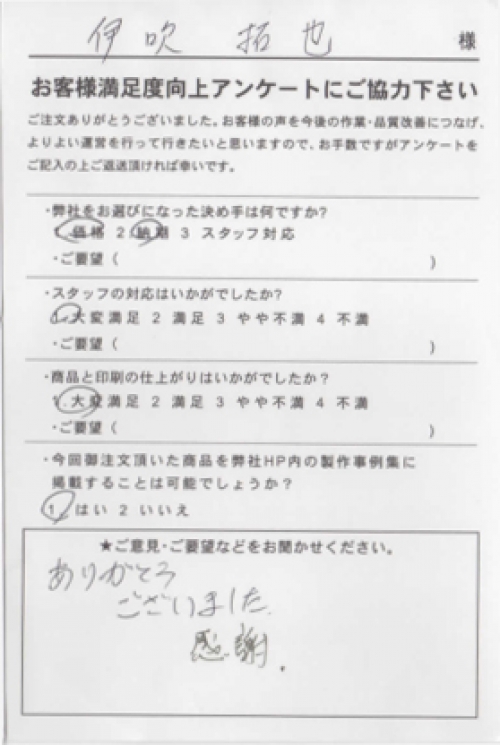 伊吹 拓也 様
お客様満足度向上アンケートにご協力下さい
ご注文ありがとうございました。お客様の声を今後の作業・品質改善につなげ、
よりよい運営を行って行きたいと思いますので、お手数ですがアンケートを
ご記入の上ご返送頂ければ幸いです。
・弊社をお選びになった決め手は何ですか?
1 価格 2 納期 3 スタッフ対応
・ご要望 ( )
・スタッフの対応はいかがでしたか?
1 大変満足 2 満足 3 やや不満 4 不満
・ご要望 ( )
・商品と印刷の仕上がりはいかがでしたか?
1 大変満足 2 満足 3 やや不満 4 不満
・ご要望 ( )
・今回御注文頂いた商品を弊社HP内の製作事例集に
掲載することは可能でしょうか?
1 はい 2 いいえ
★ご意見・ご要望などをお聞かせください。
ありがとう
ございました.
感謝.